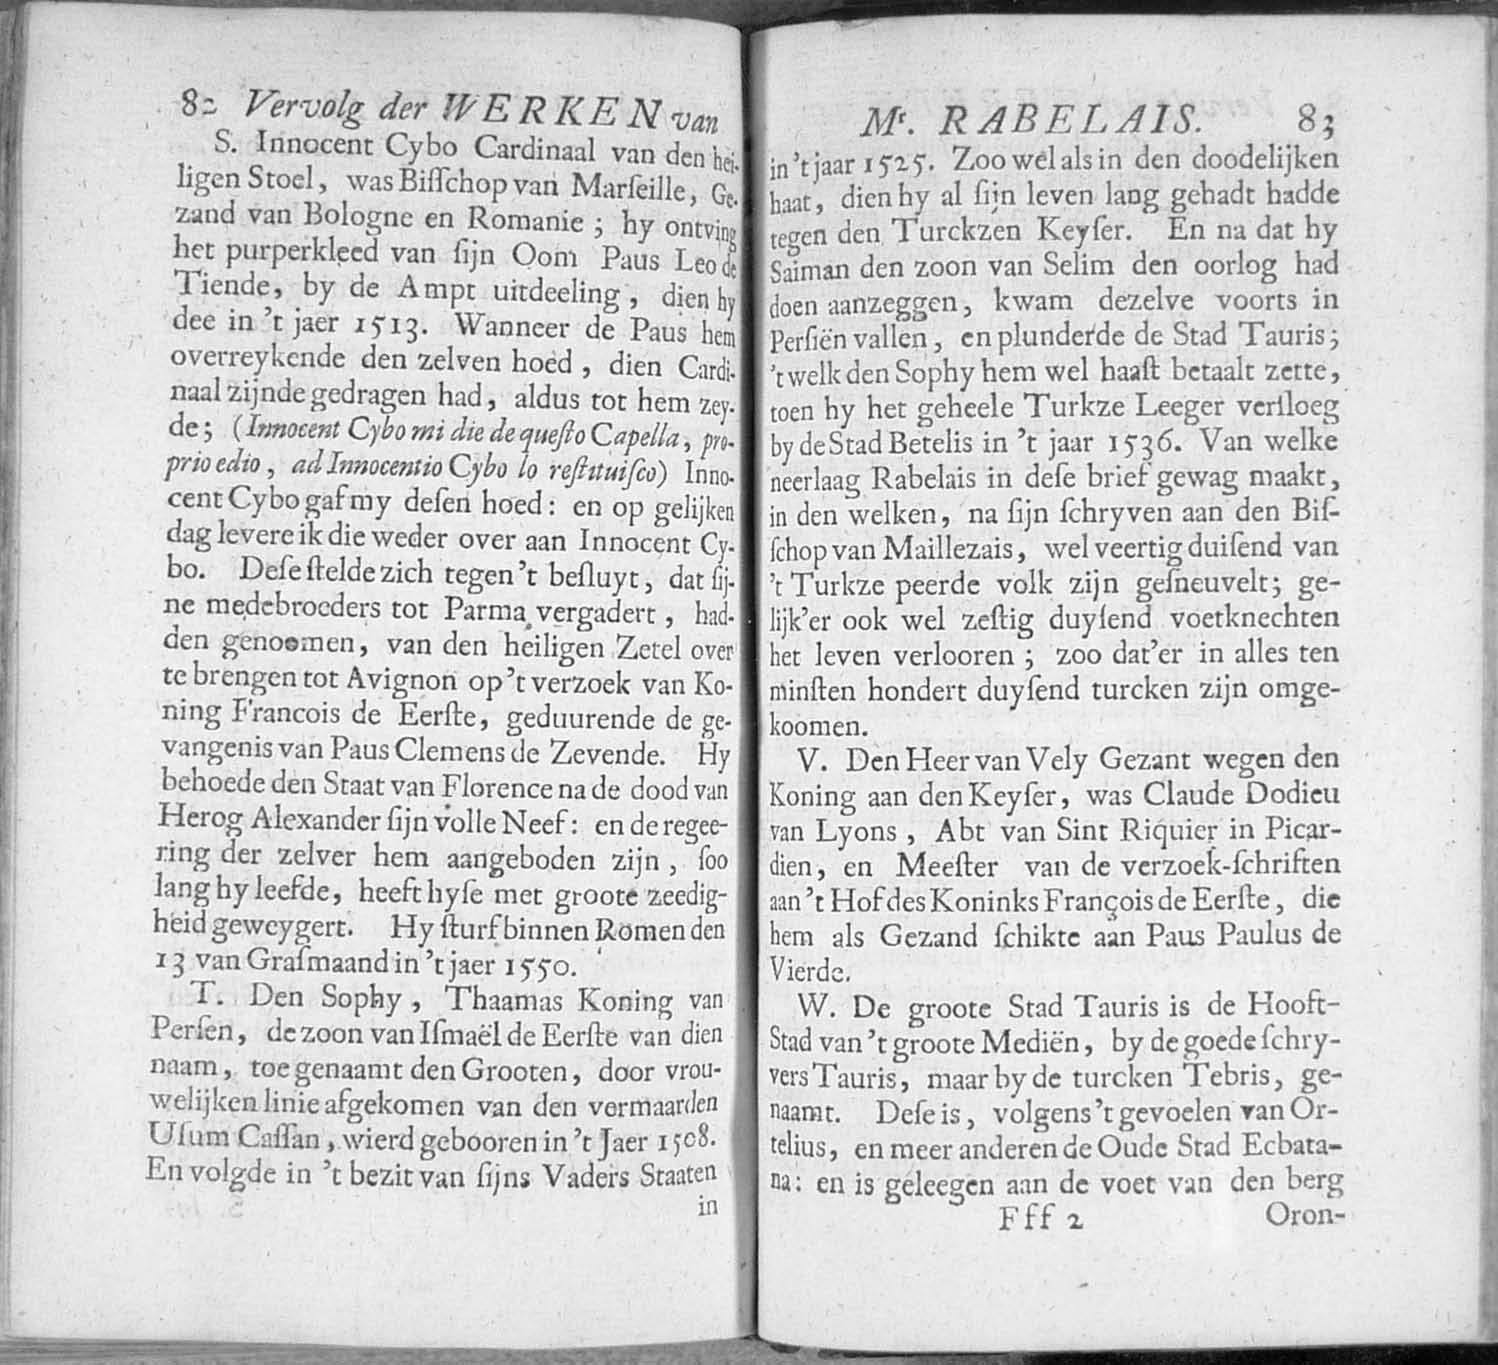 82 Vervolg der WERKEN van
S. Innocent Cybo Cardinaal van den hei-
ligen Stoel, was Biſſchop van Marſeille, Ge-
zand van Bologne en Romanie; hy ontving
het purperkleed van ſijn Oom Paus Leo de
Tiende, by de Ampt uitdeeling, dien hy
dee in 't jaer 1513. Wanneer de Paus hem
overreykende den zelven hoed, dien Cardi-
naal zijnde gedragen had, aldus tot hem zey-
de; (Innocent Cybo mi die de queſto Capella, pro-
prio edio, ad Innocentio Cybo lo reſtituiſco) Inno-
cent Cybo gaf my deſen hoed: en op gelijken
dag levere ik die weder over aan Innocent Cy-
bo. Deſe ſtelde zich tegen 't beſluyt, dat ſij-
ne medebroeders tot Parma vergadert, had-
den genoomen, van den heiligen Zetel over
te brengen tot Avignon op 't verzoek van Ko-
ning Francois de Eerſte, geduurende de ge-
vangenis van Paus Clemens de Zevende. Hy
behoede den Staat van Florence na de dood van
Herog Alexander ſijn volle Neef: en de regee-
ring der zelver hem aangeboden zijn, ſoo
lang hy leefde, heeft hyſe met groote zeedig-
heid geweygert. Hy ſturf binnen Romen den
13 van Graſmaand in 't jaer 1550.
T. Den Sophy, Thaamas Koning van
Perſen, de zoon van Iſmaël de Eerſte van dien
naam, toegenaamt den Grooten, door vrou-
welijken linie afgekomen van den vermaarden
Uſum Caſſan, wierd gebooren in 't Jaer 1508.
En volgde in 't bezit van ſijns Vaders Staaten
in
Mr. RABELAIS. 83
in 't jaar 1525. Zoo wel als in den doodelijken
haat, dien hy al ſijn leven lang gehadt hadde
tegen den Turckzen Keyſer. En na dat hy
Saiman den zoon van Selim den oorlog had
doen aanzeggen, kwam dezelve voorts in
Perſiën vallen, en plunderde de Stad Tauris;
't welk den Sophy hem wel haaſt betaalt zette,
toen hy het geheele Turkze Leeger verſloeg
by de Stad Betelis in 't jaar 1536. Van welke
neerlaag Rabelais in deſe brief gewag maakt,
in den welken, na ſijn ſchryven aan den Biſ-
ſchop van Maillezais, wel veertig duiſend van
't Turkze peerde volk zijn geſneuvelt; ge-
lijk'er ook wel zeſtig duyſend voetknechten
het leven verlooren; zoo dat'er in alles ten
minſten hondert duyſend turcken zijn omge-
koomen.
V. Den Heer van Vely Gezant wegen den
Koning aan den Keyſer, was Claude Dodieu
van Lyons, Abt van Sint Riquier in Picar-
dien, en Meeſter van de verzoek-ſchriften
aan 't Hof des Koninks François de Eerſte, die
hem als Gezand ſchikte aan Paus Paulus de
Vierde.
W. De groote Stad Tauris is de Hooft-
Stad van 't groote Mediën, by de goede ſchry-
vers Tauris, maar by de turcken Tebris, ge-
naamt. Deſe is, volgens 't gevoelen van Or-
telius, en meer anderen de Oude Stad Ecbata-
na: en is geleegen aan de voet van den berg
Fff 2 Oron-